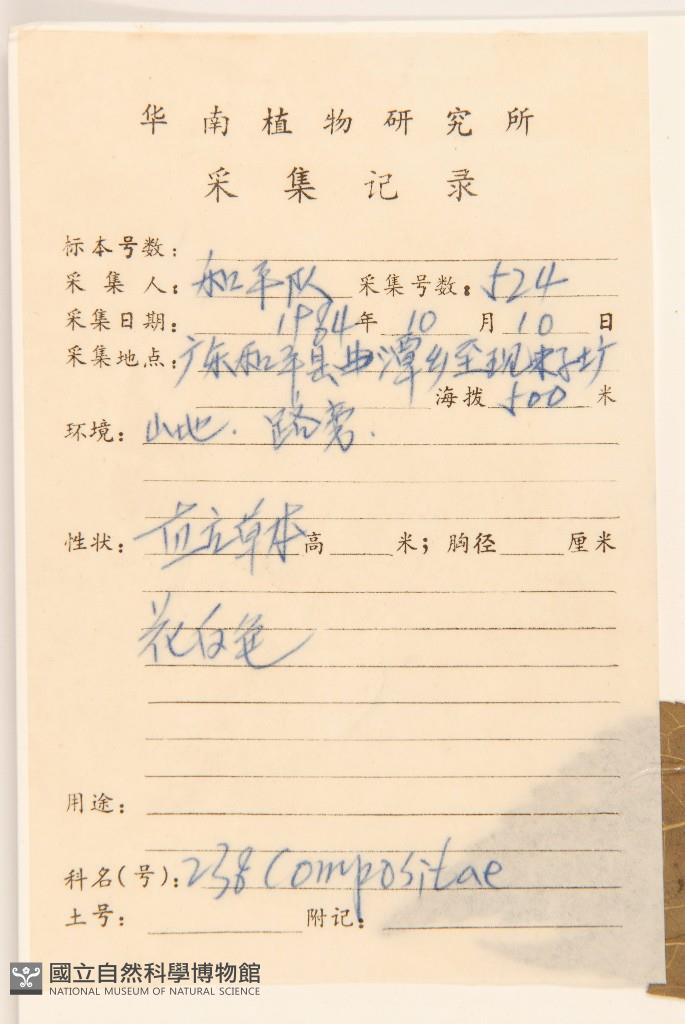 华南植物研究所
采集记录
标本号数：
采集人：和平队 采集号数：524
采集日期：1984年10月10日
采集地点：广东和平县曲潭乡至现
海拨 500 米
环境：山地．路旁．
性状：直立草本 高 米；胸径 厘米
花白色
用途：
科名(号)：238 Compositae
土号： 附记：
國立自然科學博物館
NATIONAL MUSEUM OF NATURAL SCIENCE